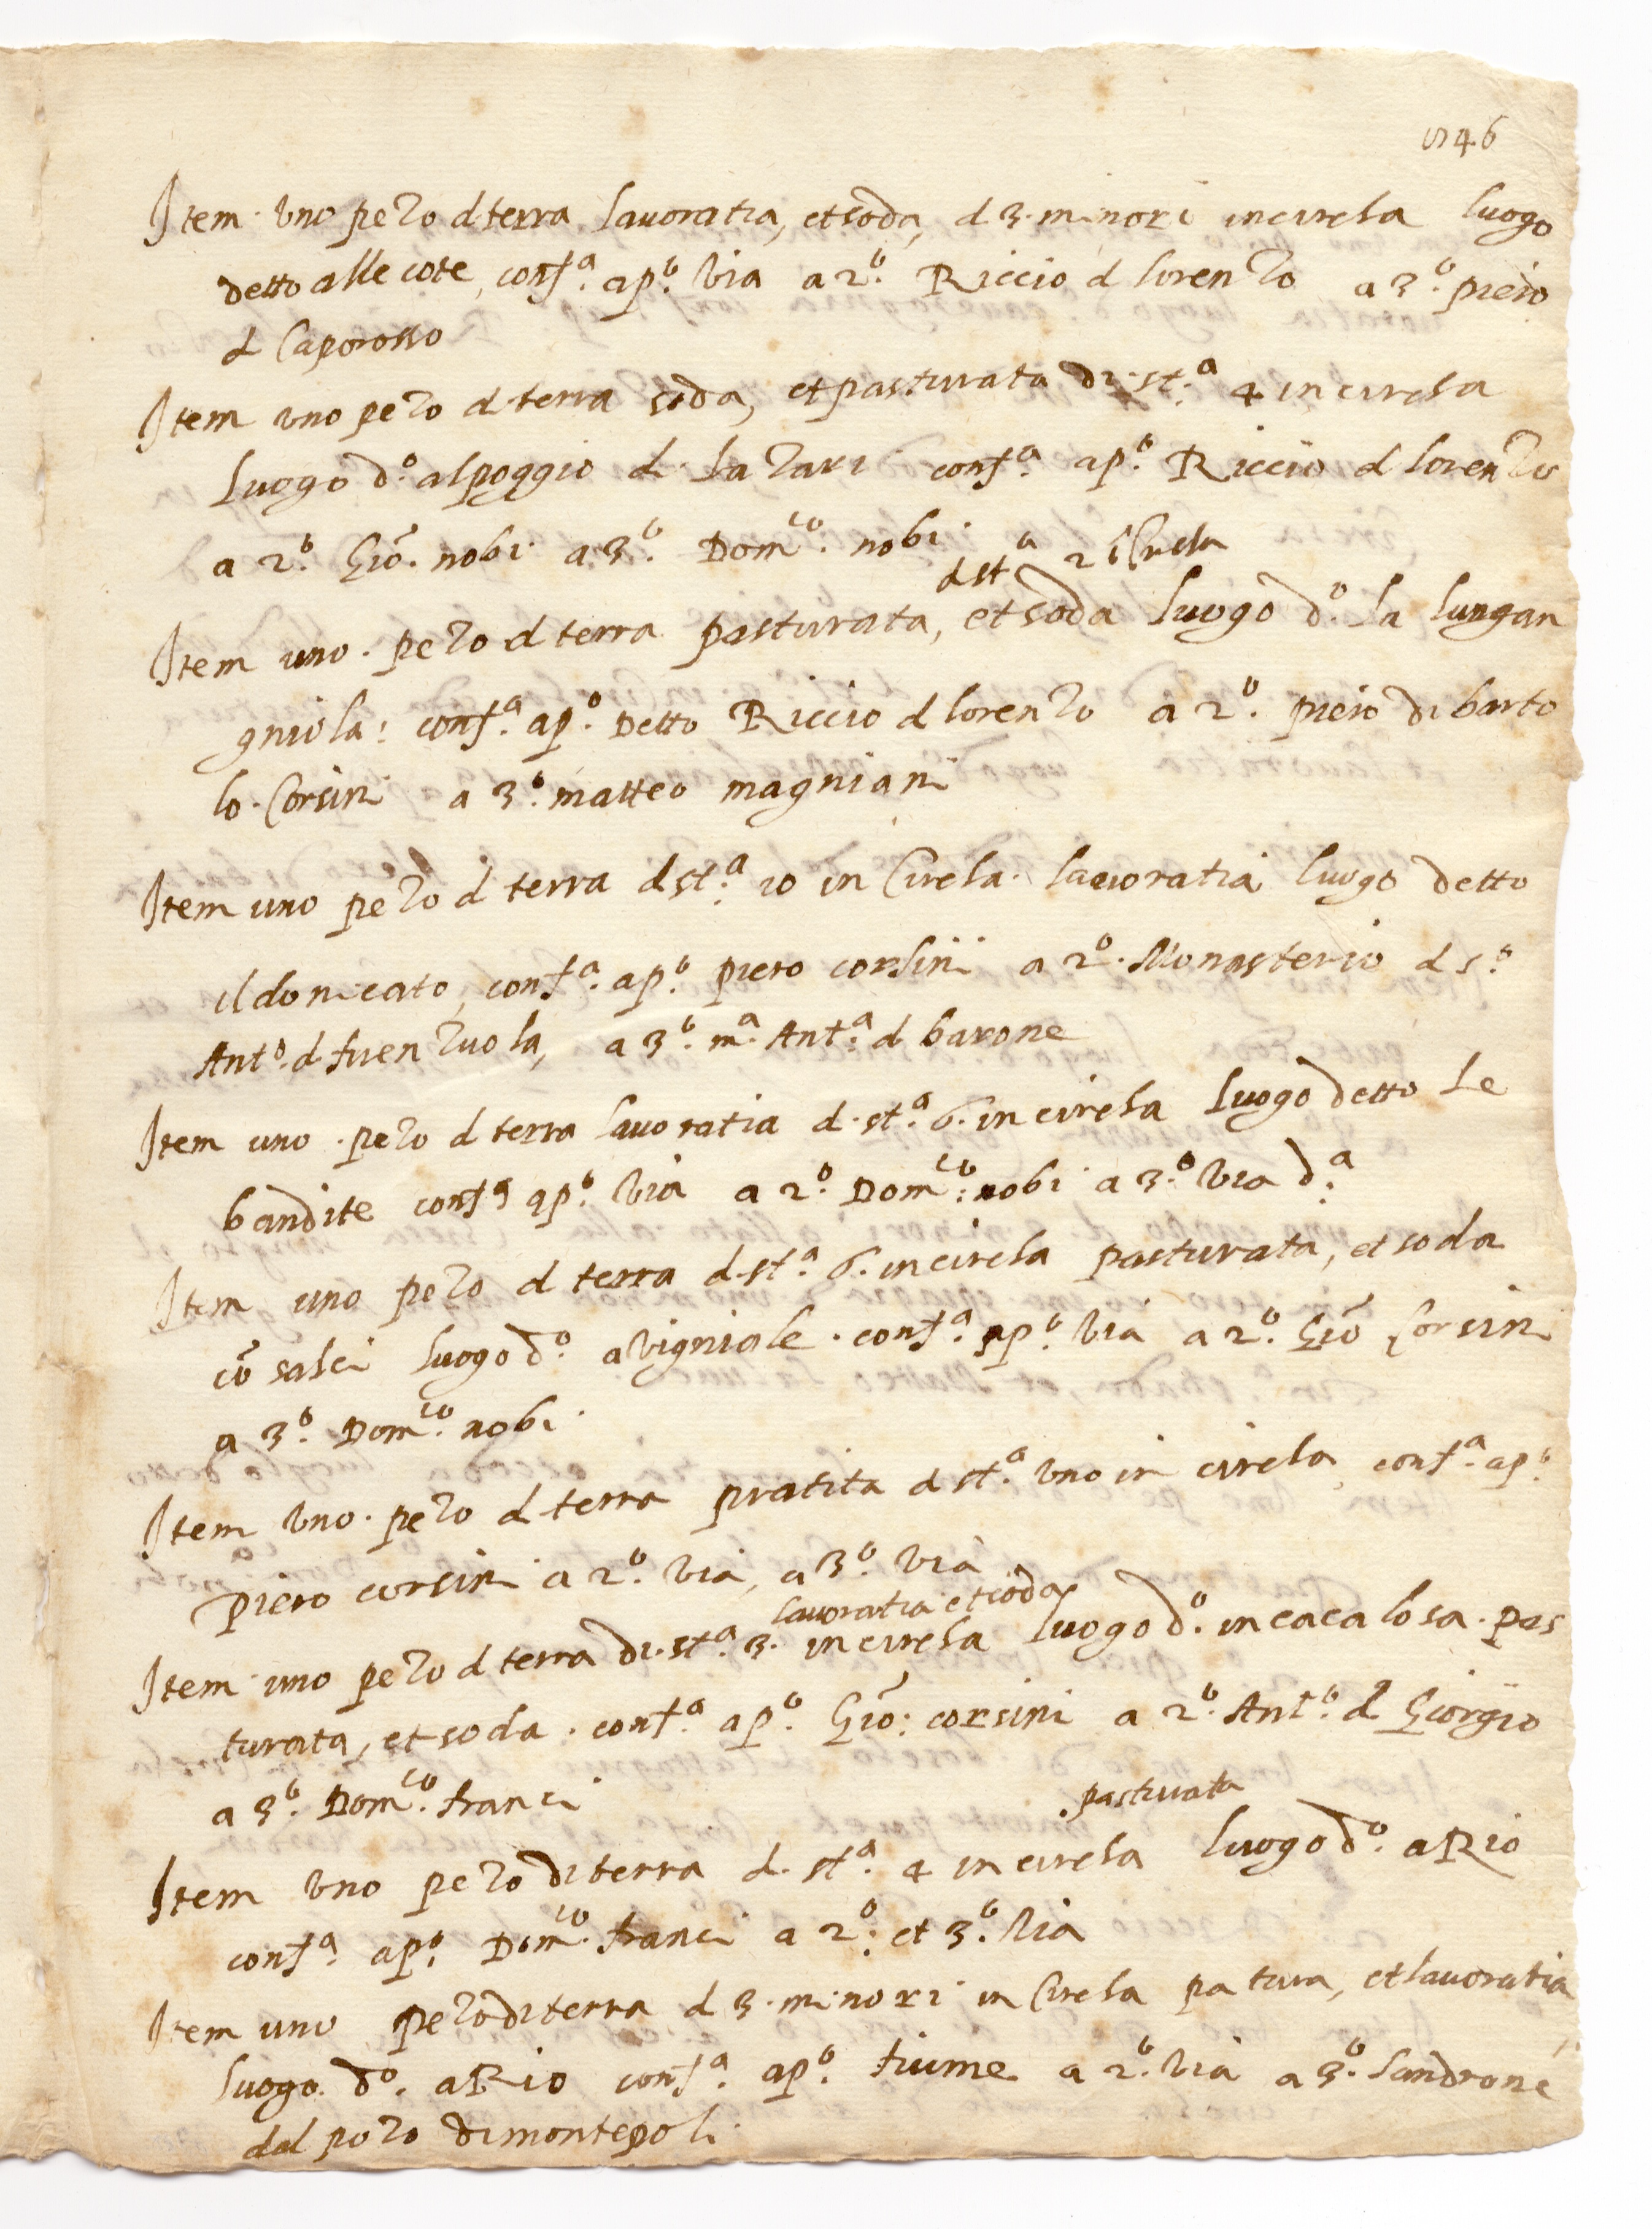 546
Item uno pezo d terra lavoratia, et soda, d 3 minori incircha luogo
detto alle cote, conf.ª ap.º via a 2.º Riccio d lorenzo a 3.º piero
d Caporosso
Item uno pezo d terra soda, et pasturata di st.ª 4 incircha
luogo d.º al poggio d lazari conf.ª ap.º Riccio d lorenzo
a 2.º Giō. nobi a 3.º Dom.co nobi
d st.ª 2 i Circha
Item uno pezo d terra pasturata, et soda luogo d.º la lungan
gniola: conf.ª ap.º Detto Riccio d lorenzo a 2.º piero di barto
lo Corsini a 3.º matteo magniani
Item uno pezo d terra d st.ª 10 in Circha lavoratia luogo detto
il donicato, conf.ª ap.º piero corsini a 2.º Monasterio d s.º
Ant.º d firenzuola, a 3.º m.ª Ant.ª d barone
Item uno pezo d terra lavoratia d st.ª 6. incircha luogo detto le
bandite conf.ª ap.º via a 2.º Dom.co nobi a 3.º via d.ª
Item uno pezo d terra d st.ª 6. incircha pasturata, et soda
cō salci luogo d.º a vigniale conf.ª ap.º via a 2.º Giō Corsini
a 3.º Dom.co nobi
Item uno pezo d terra pratita d st.ª uno in circha conf.ª ap.º
piero corsini a 2.º via, a 3.º via
lavoratia et soda
Item uno pezo d terra di st.ª 3. incircha luogo d.º in cacalosa pas
turata, et soda conf.ª ap.º Giō: corsini a 2.º Ant.º d Giorgio
a 3.º Dom.co franci
pasturata
Item uno pezo di terra d st.ª 4 incircha luogo d.º a Rio
conf.ª ap.º Dom.co franci a 2.º et 3.º via
Item uno pezo di terra d 3 minori in Circha patura, et lavoratia
luogo d.º a Rio conf.ª ap.º fiume a 2.º via a 3.º Sandrone
dal pozo di montepoli